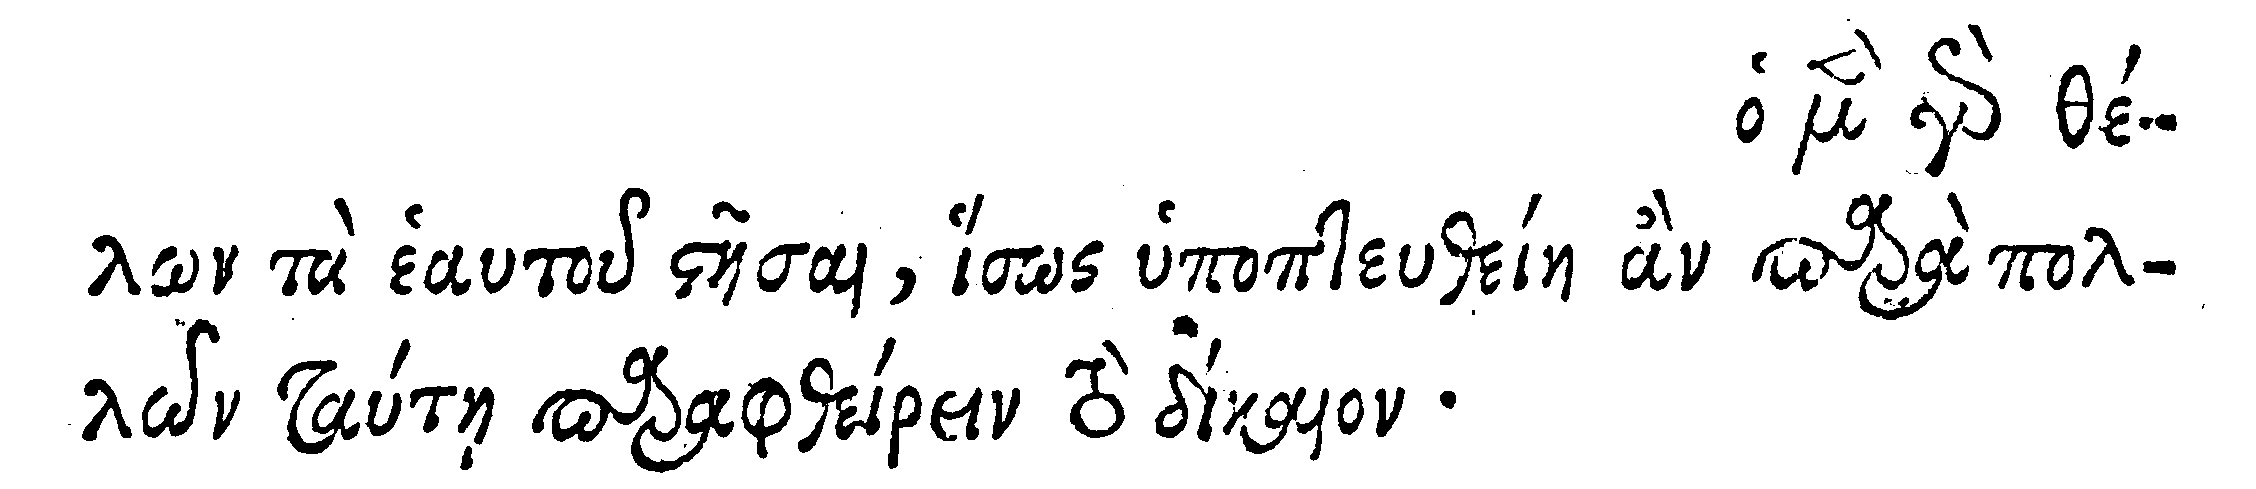 ὁ μὲν γὰρ θέ-
λων τὰ ἑαυτοῦ στῆσαι, ἴσως ὑποπτευθείη ἂν παρὰ πολ-
λῶν ταύτῃ παραφθείρειν τὸ δίκαιον.